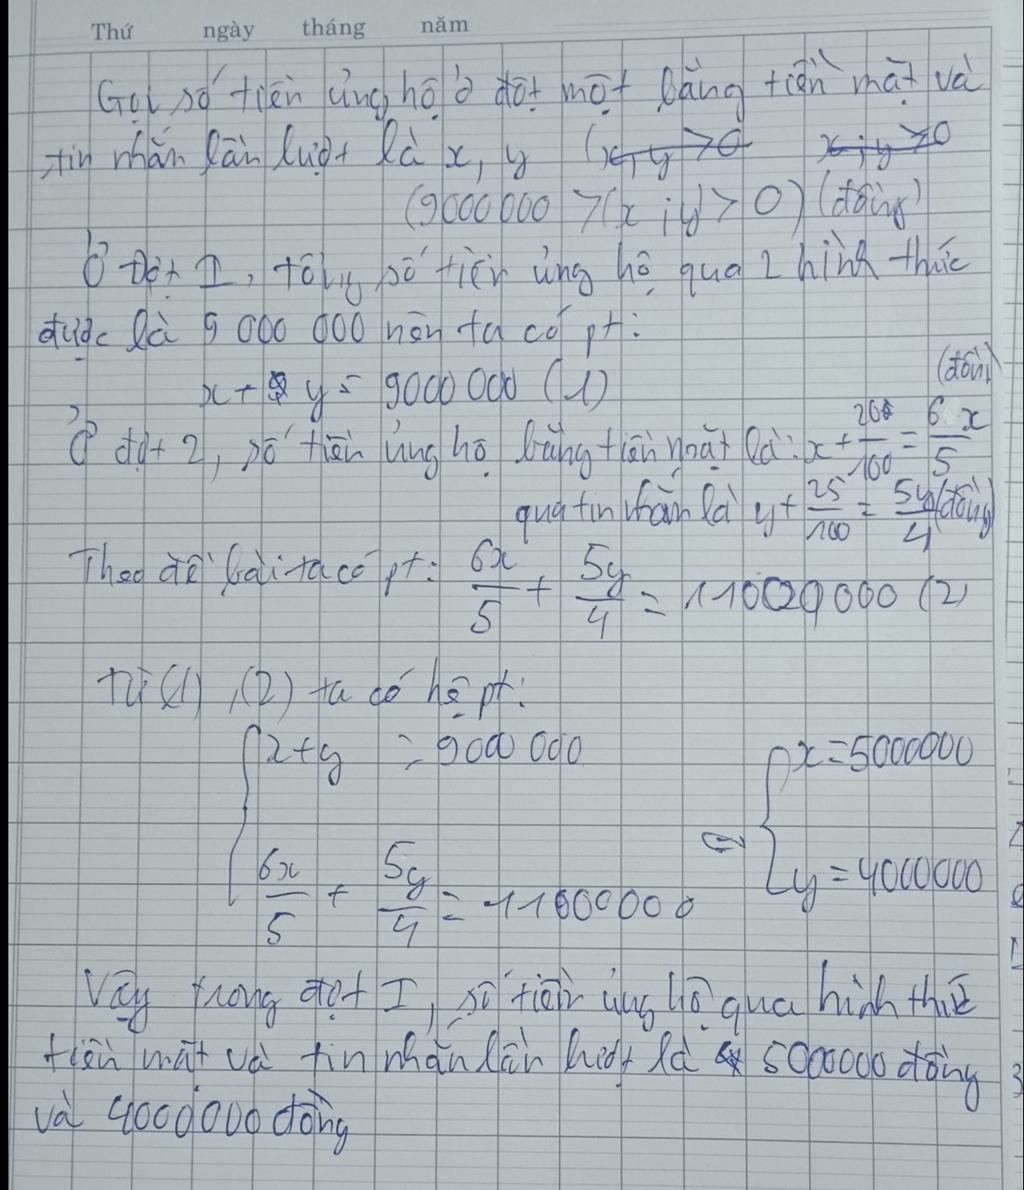 Thứ ngày tháng năm
Gọi số tiền ủng hộ ở đợt một bằng tiền mặt và
tin nhắn lần lượt là x, y (x, y > 0 x; y > 0
(9000 000 > (x; y) > 0) (đồng)
Ở Đợt I, tổng số tiền ủng hộ qua 2 hình thức
được là 9 000 000 nên ta có pt:
x + y = 9000 000 (1)
(đồng)
Ở đợt 2, số tiền ủng hộ bằng tiền mặt là: x + 20/100 = 6x/5
qua tin nhắn là y + 25/100 = 5y/4 (đồng)
Theo đề bài ta có pt: 6x/5 + 5y/4 = 11000 000 (2)
Từ (1), (2) ta có hệ pt:
x + y = 9000 000 x = 5000000
⇔
6x/5 + 5y/4 = 11000000 y = 4000000
Vậy trong đợt I, số tiền ủng hộ qua hình thức
tiền mặt và tin nhắn lần lượt là 5000000 đồng
và 4000000 đồng